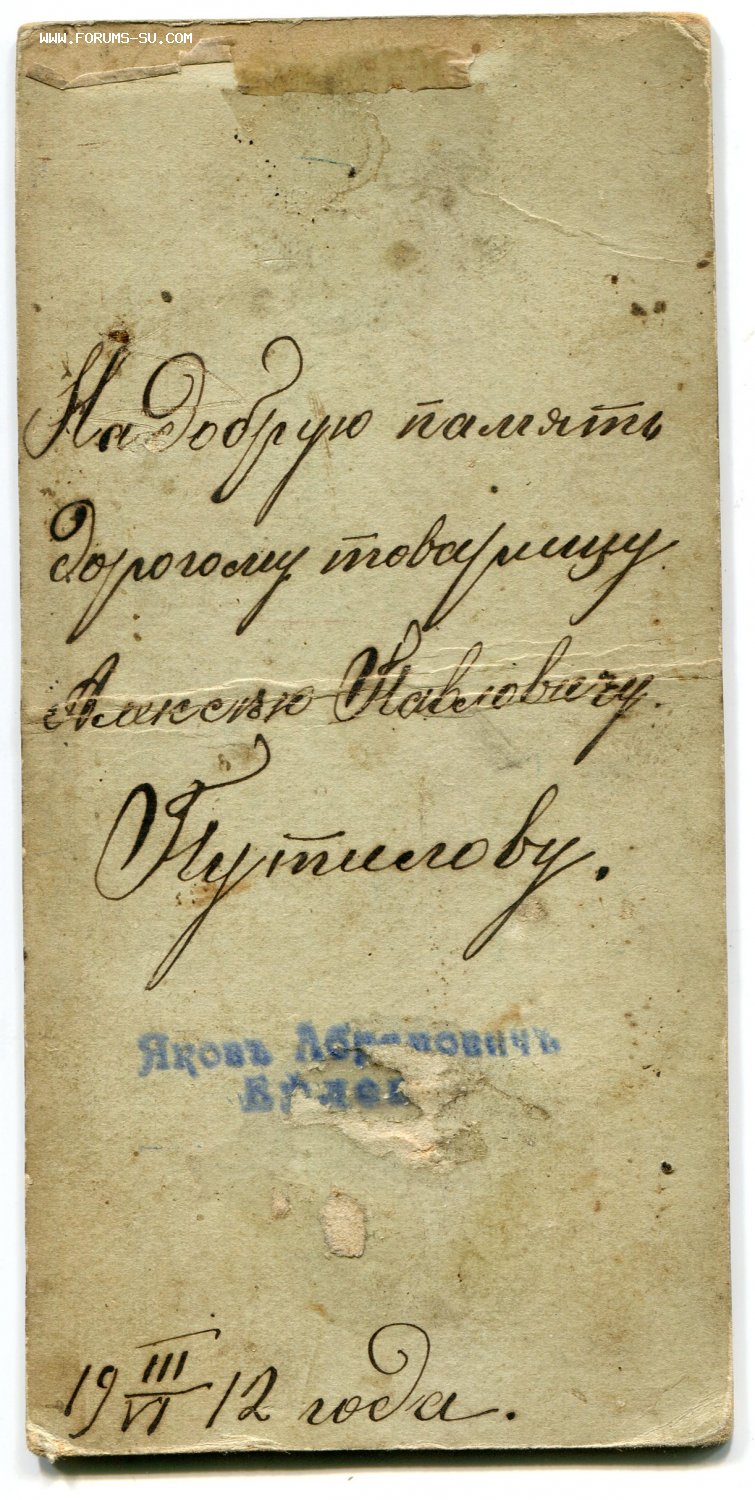 WWW.FORUMS-SU.COM
На добрую память
дорогому товарищу
Алексѣю Павловичу.
Путилову.
Яковъ Абрамовичъ
19 III/VI 12 года.